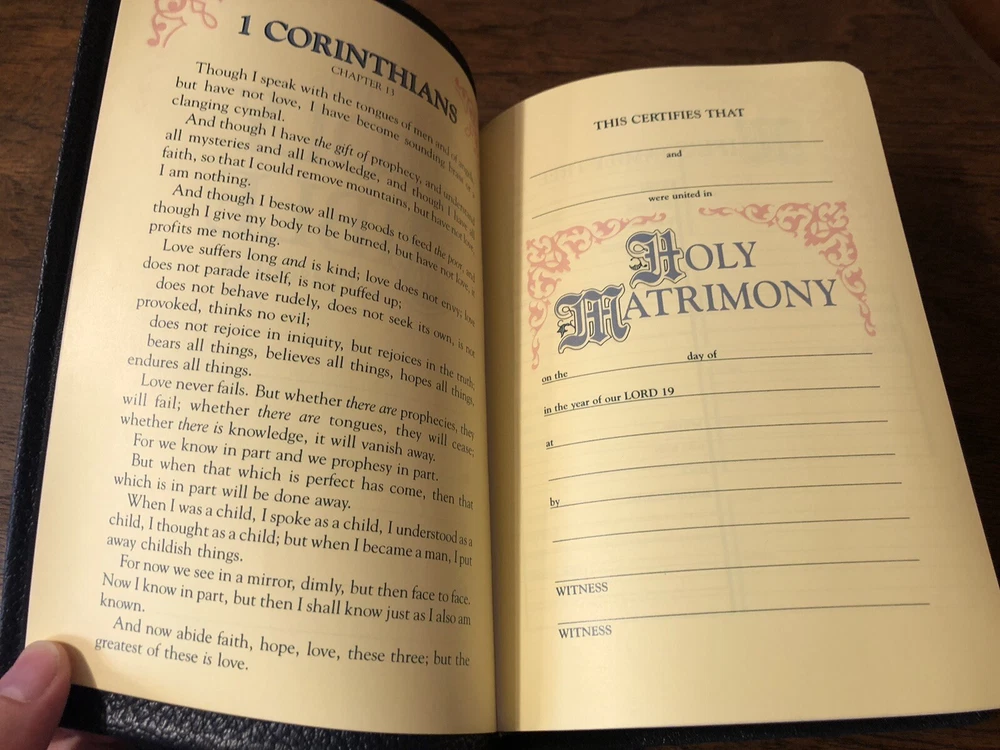 1 CORINTHIANS
CHAPTER 13
Though I speak with the tongues of men and of angels,
but have not love, I have become sounding brass or a
clanging cymbal.
And though I have the gift of prophecy, and understand
all mysteries and all knowledge, and though I have all
faith, so that I could remove mountains, but have not love
I am nothing.
And though I bestow all my goods to feed the poor, and
though I give my body to be burned, but have not love, it
profits me nothing.
Love suffers long and is kind; love does not envy; love
does not parade itself, is not puffed up;
does not behave rudely, does not seek its own, is not
provoked, thinks no evil;
does not rejoice in iniquity, but rejoices in the truth;
bears all things, believes all things, hopes all things,
endures all things.
Love never fails. But whether there are prophecies, they
will fail; whether there are tongues, they will cease;
whether there is knowledge, it will vanish away.
For we know in part and we prophesy in part.
But when that which is perfect has come, then that
which is in part will be done away.
When I was a child, I spoke as a child, I understood as a
child, I thought as a child; but when I became a man, I put
away childish things.
For now we see in a mirror, dimly, but then face to face.
Now I know in part, but then I shall know just as I also am
known.
And now abide faith, hope, love, these three; but the
greatest of these is love.
THIS CERTIFIES THAT
and
were united in
HOLY
MATRIMONY
on the day of
in the year of our LORD 19
at
by
WITNESS
WITNESS